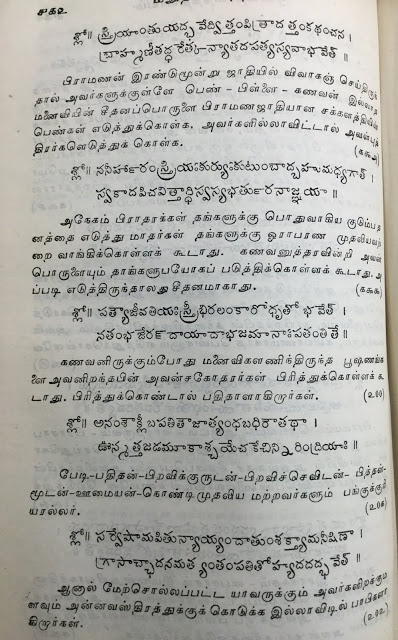 ௪௬௨
శ్లో॥ స్త్రియాంతుయద్భవేద్విత్తంపిత్రాదత్తంకథంచన ।
బ్రాహ్మణీతద్ధరేత్కన్యాతదపత్యస్యవాభవేత్ ॥
பிராமணன் இரண்டுமூன்று ஜாதியில் விவாகஞ் செய்திருந்
தால் அவர்களுக்குள்ளே பெண் - பிள்ளை - கணவன் இல்லாத
மனைவியின் சீதனப்பொருளை பிராமணஜாதியான சக்களத்தியின்
பெண்கள் எடுத்துக்கொள்க. அவர்களில்லாவிட்டால் அவள்புத்
திரர்களெடுத்துக் கொள்க.
శ్లో॥ ననిర్హారంస్త్రియఃకుర్యుఃకుటుంబాద్బహుమధ్యగాత్ ।
స్వకాదపిచవిత్తాద్ధిస్వస్యభర్తురనాజ్ఞయా ॥
அநேகம் பிராதாக்கள் தங்களுக்கு பொதுவாகிய குடும்பத
னத்தை எடுத்து மாதர்கள் தங்களுக்கு ஓராபரண முதலியவற்
றை வாங்கிக்கொள்ளக் கூடாது. கணவனுத்தரவின்றி அவன்
பொருளையும் தாங்களுபயோகப் படுத்திக்கொள்ளக் கூடாது. அ
ப்படி எடுத்திருந்தாலது சீதனமாகாது. (௧௯௯)
శ్లో॥ పత్యౌజీవతియఃస్త్రీభిరలంకారోధృతో భవేత్ ।
నతంభజేరన్ దాయాదాభజమానాఃపతంతితే ॥
கணவனிருக்கும்போது மனைவிகளணிந்திருந்த பூஷணங்க
ளை அவனிறந்தபின் அவன்சகோதரர்கள் பிரித்துக்கொள்ளக் கூ
டாது. பிரித்துக்கொண்டால் பதிதராளாகிறார்கள். (௨௦௦)
శ్లో॥ అనంశౌక్లీబపతితౌజాత్యంధబధిరౌతథా ।
ఉన్మత్తజడమూకాశ్చయేచకేచిన్నిరింద్రియాః ॥
பேடி-பதிதன்-பிறவிக்குருடன்-பிறவிச்செவிடன்- பித்தன்-
மூடன்-ஊமையன்-கொண்டிமுதலிய மற்றவர்களும் பங்குக்குரி
யரல்லர். (௨௦௧)
శ్లో॥ సర్వేషామపితున్యాయ్యందాతుంశక్త్యామనీషిణా ।
గ్రాసాచ్ఛాదనమత్యంతంపతితోహ్యదదద్భవేత్ ॥
ஆனால் மேற்சொல்லப்பட்ட யாவருக்கும் அவர்களிறக்கும
ளவும் அன்னவஸ்திரத்துக்குக் கொடுக்க இல்லாவிடில் பாபிகளா
கிறார்கள். (௨௦௨)